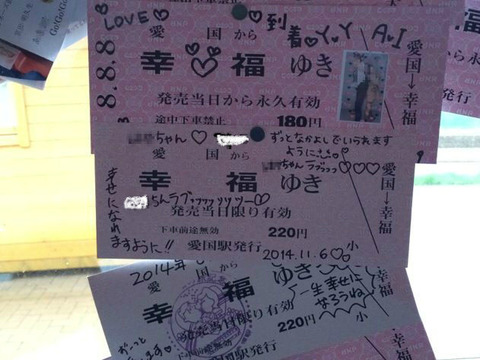 Go!Go!Go!
LOVE♡ ♡到着♡Y.Y A♡I
愛国から
幸福ゆき
8.8.8
発売当日から永久有効
途中下車禁止 180円
愛国→幸福
ちゃん♡
ずっとなかよしでいられます
ように
愛国から
ちゃんラブ
♡♡♡
幸福ゆき
愛国→幸福
ちんラブ
発売当日限り有効
幸せになれ
ますように!!
下車前途無効 220円
愛国駅発行 2014.11.6 小
2014年
愛国から
幸福ゆき
一生幸せに
なろうね
発売当日限り有効
220円 小
幸福
ずーっと
下車前途無効
駅発行